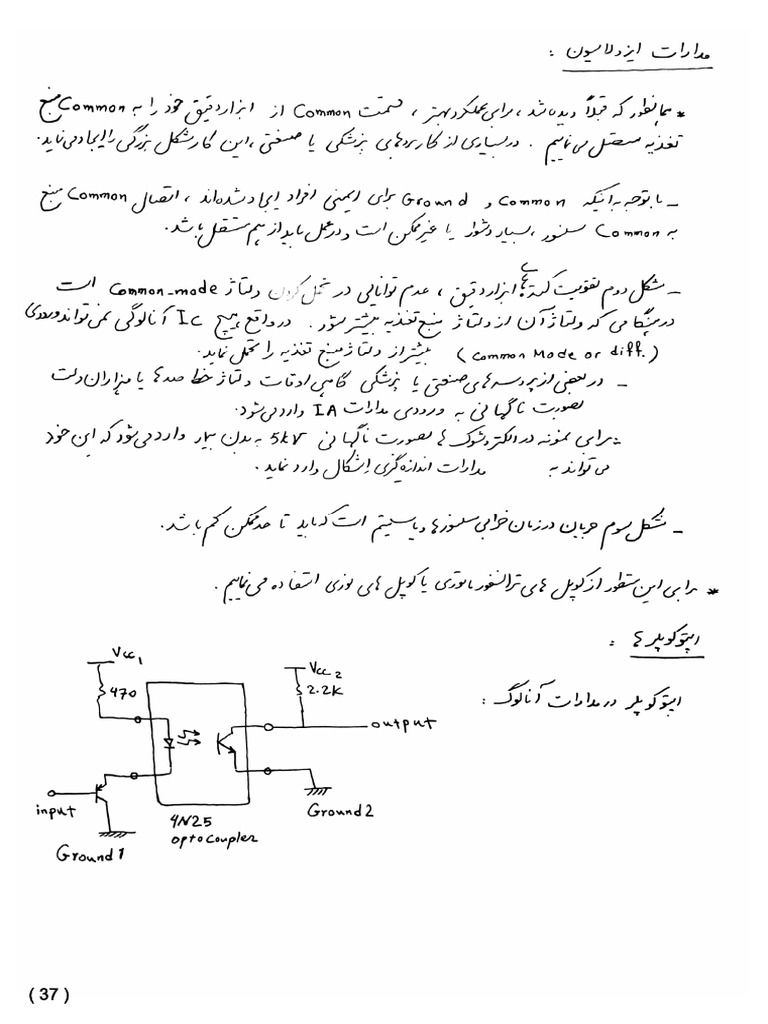 مدارات ایزولاسیون :
* همانطور که قبلاً دیده شد ، برای عملکرد بهتر ، قسمت Common از ابزار دقیق خود را به Common منبع
تغذیه متصل می نماییم . در بسیاری از کاربردهای پزشکی یا صنعتی ، این کار مشکل بزرگی را ایجاد می نماید.
- با توجه به اینکه Common و Ground برای ایمنی افراد ایجاد شده اند ، اتصال Common منبع
به Common سنسور ، بسیار دشوار یا غیر ممکن است و در عمل باید از هم مستقل باشد.
- مشکل دوم تقویت کننده های ابزار دقیق ، عدم توانایی در تحمل کردن ولتاژ Common-mode است
در هنگامی که ولتاژ آن از ولتاژ منبع تغذیه بیشتر شود . در واقع هیچ IC آنالوگی نمی تواند ورودی
(Common Mode or diff.) بیشتر از ولتاژ منبع تغذیه را تحمل نماید.
- در بعضی از پروسه های صنعتی یا پزشکی گاهی اوقات ولتاژ خط صدها یا هزاران ولت
بصورت ناگهانی به ورودی مدارات IA وارد می شود.
برای نمونه در الکتروشوک ها بصورت ناگهانی 5kV به بدن بیمار وارد می شود که این خود
می تواند به مدارات اندازه گیری اشکال وارد نماید .
- مشکل سوم جریان در زمان خرابی سنسورها و یا سیستم است که باید تا حد ممکن کم باشد .
* برای این منظور از کوپل های ترانسفورماتوری یا کوپل های نوری استفاده می نماییم .
اپتوکوپلر ها :
اپتوکوپلر در مدارات آنالوگ :
Vcc1
470
Vcc2
2.2K
output
input
Ground1
4N25
optocoupler
Ground2
( 37 )